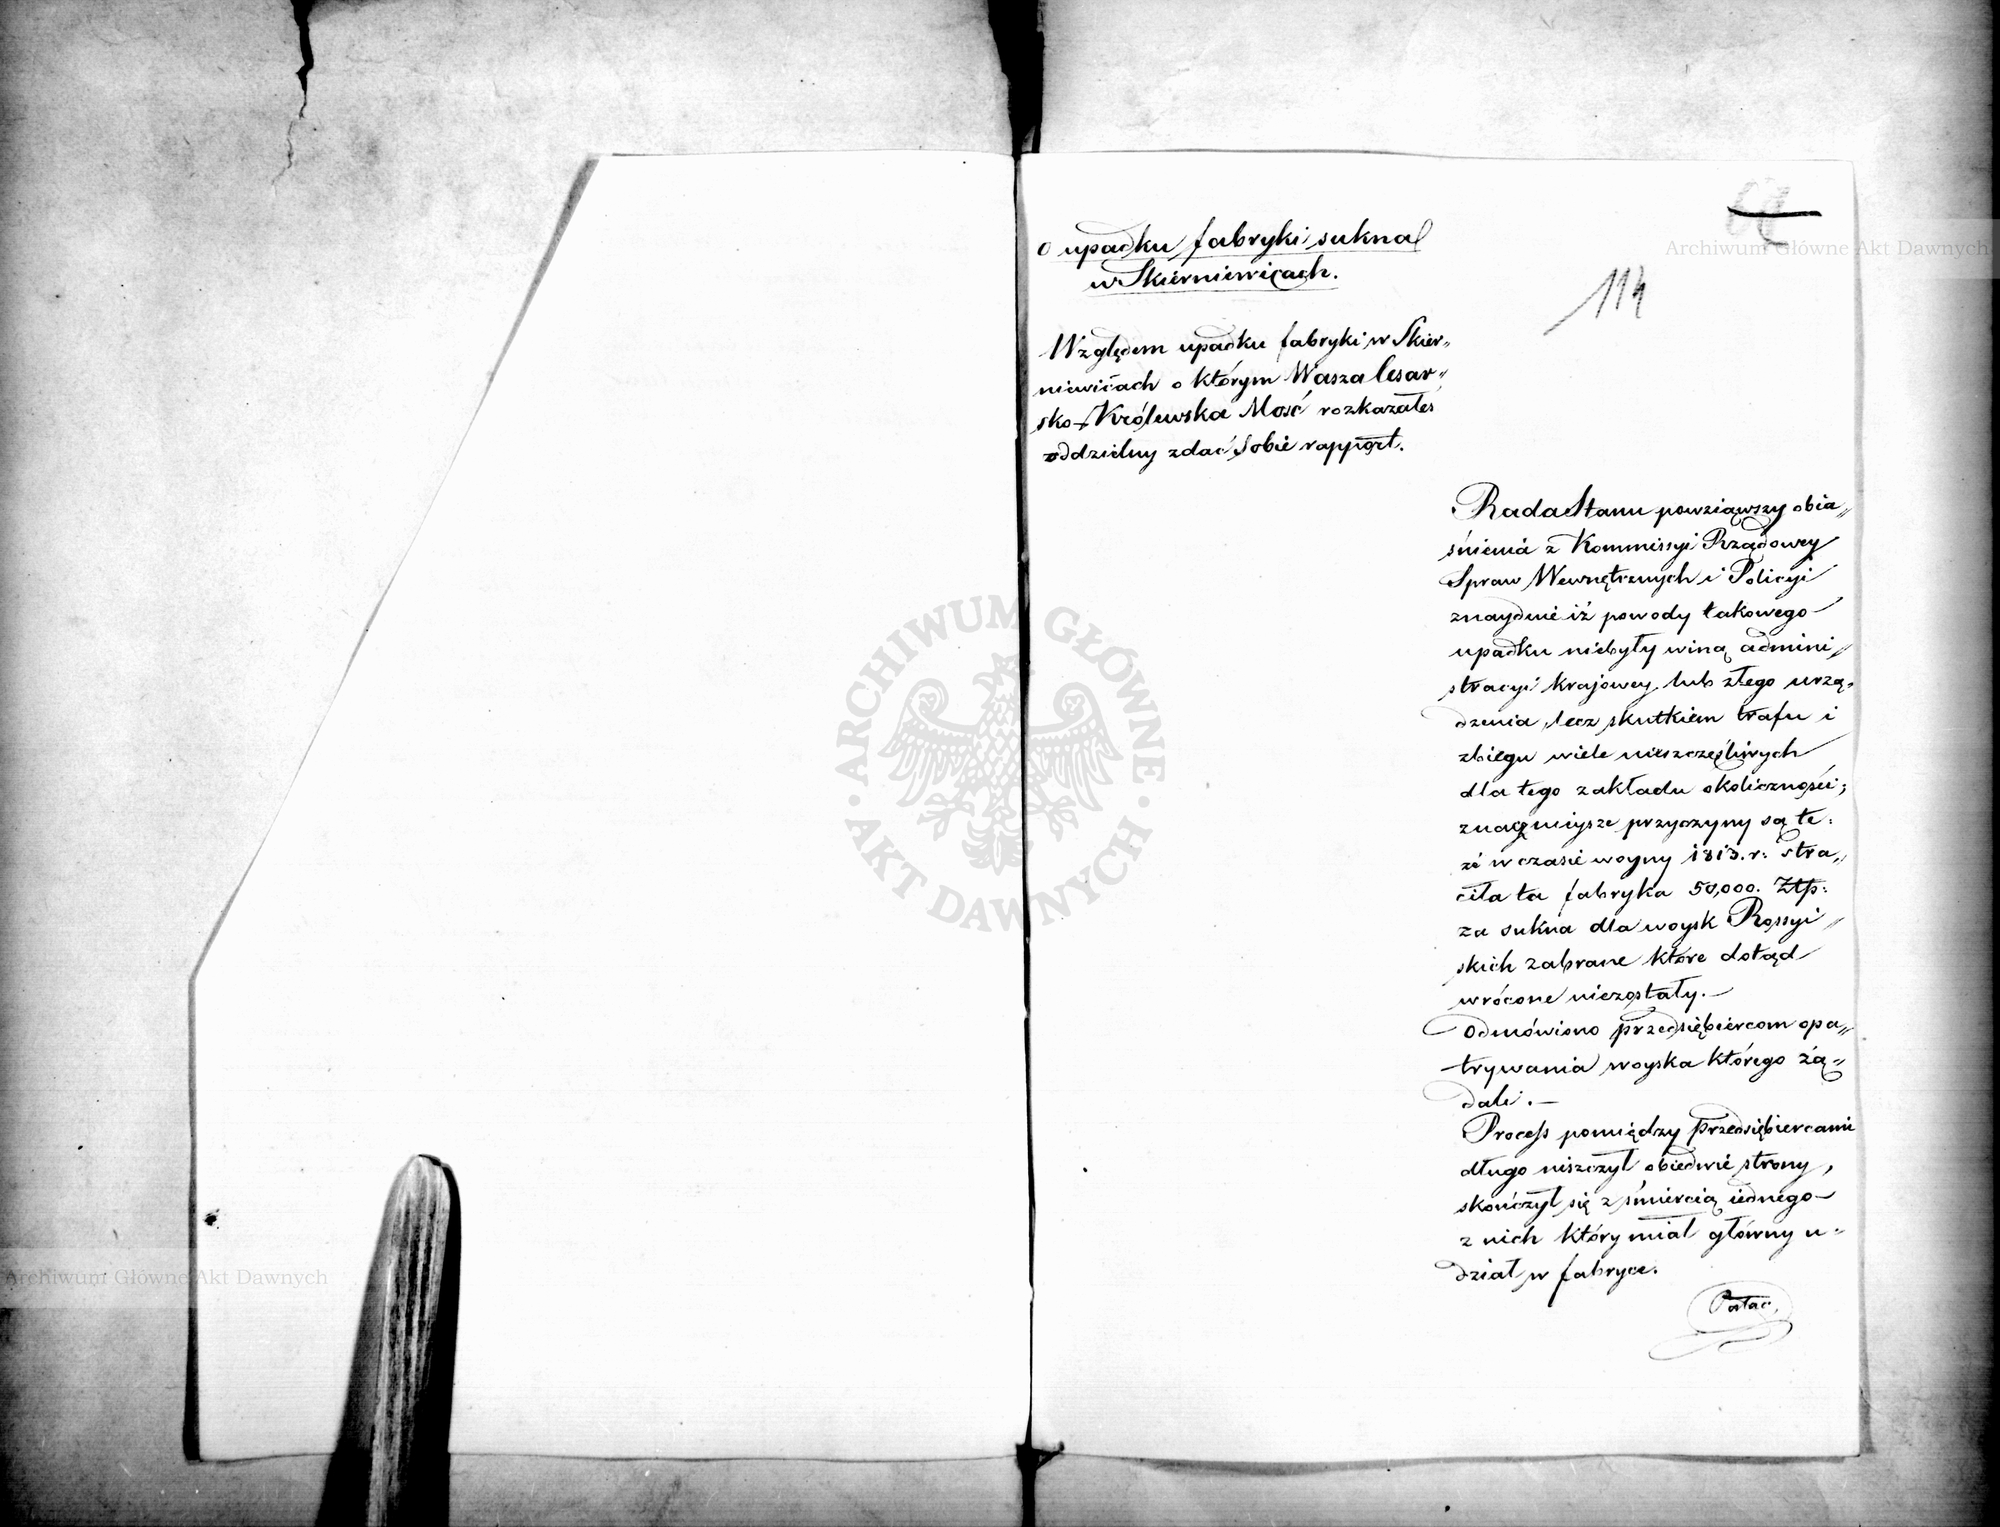 68
Archiwum Główne Akt Dawnych
114
O upadku fabryki sukna
w Skierniewicach.
Względem upadku fabryki w Skier„
niewicach o którym Wasza Cesar„
sko-Królewska Mość rozkazałeś
oddzielny zdać Sobie rapport.
Rada Stanu powziąwszy obia„
śnienia z Kommissyi Rządowey
Spraw Wewnętrznych i Policyi
znayduie iż powody takowego
upadku niebyły winą admini„
stracyi krajowey lub złego urzą„
dzenia, lecz skutkiem trafu i
zbiegu wiele nieszczęśliwych
dla tego zakładu okoliczności;
znacznieysze przyczyny są te:
że w czasie woyny 1813. r: stra„
ciła ta fabryka 50,000. Złp:
za sukna dla woysk Rossyi„
skich zabrane które dotąd
wrócone niezostały.—
Odmówiono przedsiębiercom opa„
trywania woyska którego żą„
dali.—
Process pomiędzy przedsiębiercami
długo niszczył obiedwie strony,
skończył się z śmiercią iednego
z nich który miał główny u„
dział w fabryce.
ARCHIWUM GŁÓWNE
AKT DAWNYCH
Archiwum Główne Akt Dawnych